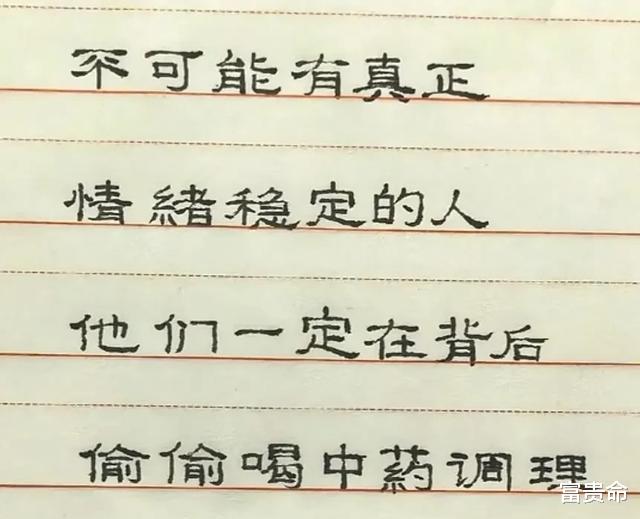 不可能有真正
情緒稳定的人
他们一定在背后
偷偷喝中药调理
富贵命